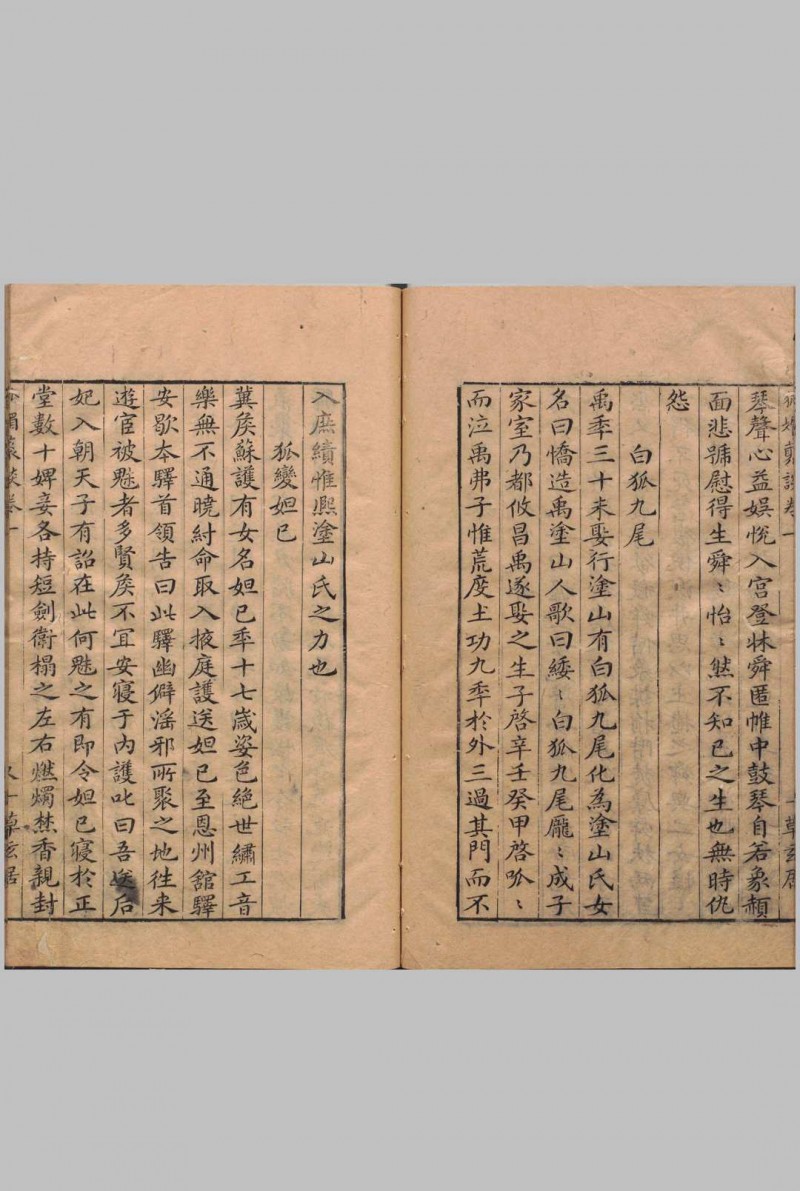 狐媚叢談卷一
草玄居
琴聲心益娛悅入宮登牀舜匿帷中鼓琴自若象頳
面悲號慰得生舜〻怡〻然不知已之生也無時仇
怨
白狐九尾
禹秊三十未娶行塗山有白狐九尾化為塗山氏女
名曰憍造禹塗山人歌曰綏〻白狐九尾龐〻成子
家室乃都攸昌禹遂娶之生子啓辛壬癸甲啓呱〻
而泣禹弗子惟荒度土功九秊於外三過其門而不
入庶績惟熙塗山氏之力也
狐變妲已
冀矦蘇護有女名妲已秊十七歲姿色絕世繡工音
樂無不通曉紂命取入掖庭護送妲已至恩州舘驛
安歇本驛首領告曰此驛幽僻滛邪所聚之地徃来
遊宦被魅者多賢矦不宜安寢于內護叱曰吾送后
妃入朝天子有詔在此何魅之有即令妲已寢於正
堂數十婢妾各持短劍衛榻之左右燃燭焚香親封
狐媚叢談卷一
草玄居